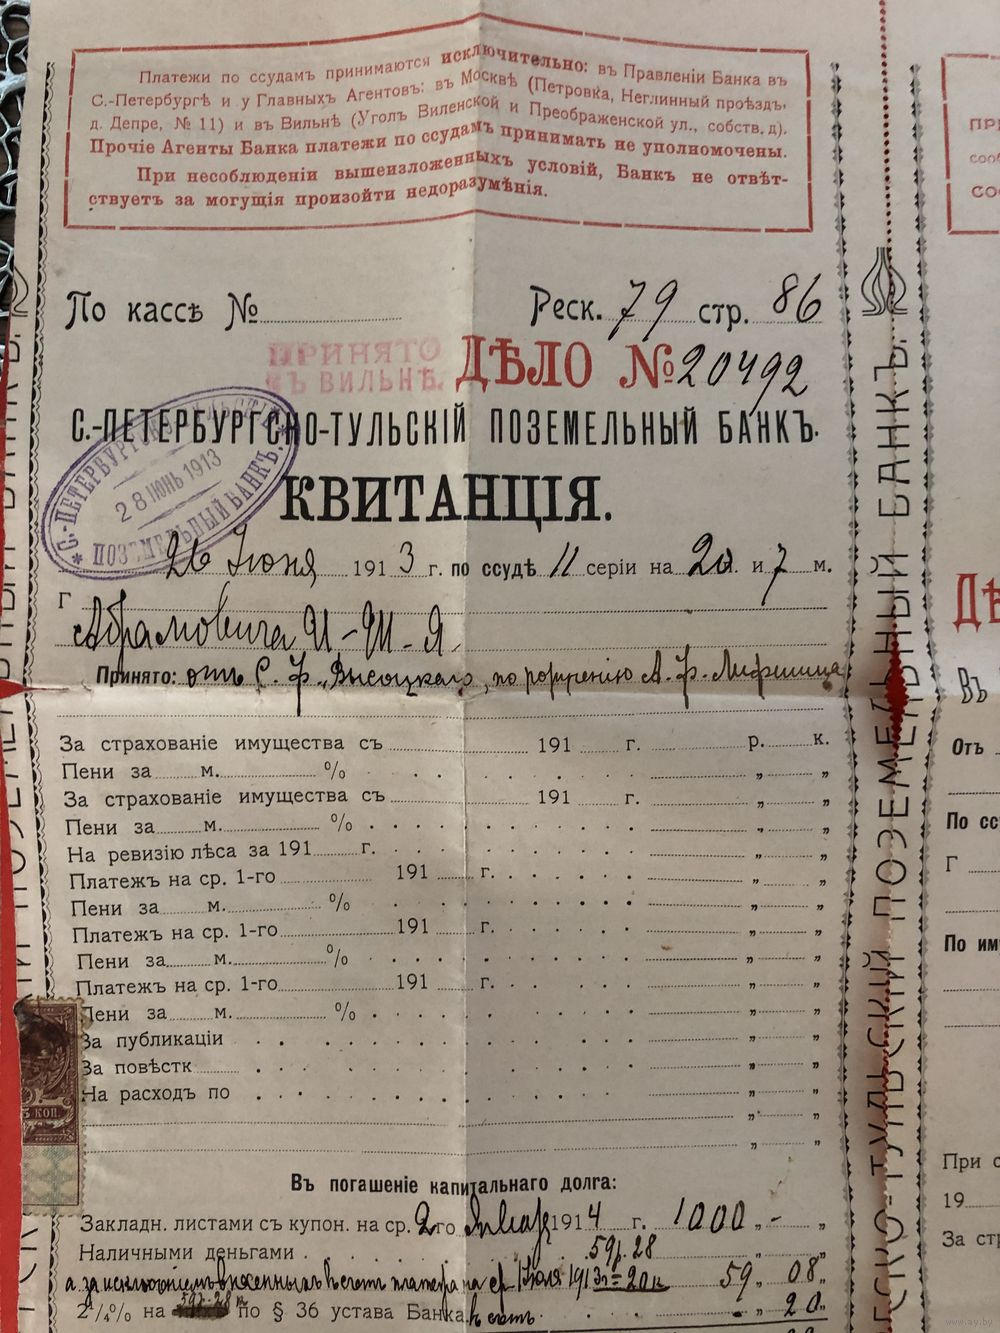 Платежи по ссудамъ принимаются исключительно: въ Правленіи Банка въ
С.-Петербургѣ и у Главныхъ Агентовъ: въ Москвѣ (Петровка, Неглинный проѣздъ,
д. Депре, № 11) и въ Вильнѣ (Уголъ Виленской и Преображенской ул., собств. д).
Прочіе Агенты Банка платежи по ссудамъ принимать не уполномочены.
При несоблюденіи вышеизложенныхъ условій, Банкъ не отвѣт-
ствуетъ за могущія произойти недоразумѣнія.
По кассѣ №
Реск. 79 стр. 86
ПРИНЯТО
ВЪ ВИЛЬНѢ.
ДѢЛО № 20492
С.-ПЕТЕРБУРГСКО-ТУЛЬСКІЙ ПОЗЕМЕЛЬНЫЙ БАНКЪ.
С.-ПЕТЕРБУРГСКО-ТУЛЬСКІЙ
28 ІЮНЬ 1913
ПОЗЕМЕЛЬНЫЙ БАНКЪ.
КВИТАНЦІЯ.
26 Іюня 1913 г. по ссудѣ 11 серіи на 20 л. и 7 м.
Г
Абрамовича И-Ш-Я.
Принято: отъ С. Ф. Высоцкаго, по порученію А. Ф. Лифшица
За страхованіе имущества съ 191 г. р. к.
Пени за м. % „ „
За страхованіе имущества съ 191 г. „ „
Пени за м. % „ „
На ревизію лѣса за 191 г. „ „
Платежъ на ср. 1-го 191 г. „ „
Пени за м. % „ „
Платежъ на ср. 1-го 191 г. „ „
Пени за м. % „ „
Платежъ на ср. 1-го 191 г. „ „
Пени за м. % „ „
За публикаціи „ „
За повѣстк „ „
На расходъ по „ „
5 КОП.
Въ погашеніе капитальнаго долга:
Закладн. листами съ купон. на ср. 2-го Января 1914 г. 1000 „ - „
59р. 28
Наличными деньгами „ „
а за исключеніемъ внесенныхъ въ счетъ платежа на ср. 1 Іюля 1913 г = 20 к 59 „ 08 „
2¼% на 59р. 28к по § 36 устава Банка къ счетъ „ 20 „
С.-ПЕТЕРБУРГСКО-ТУЛЬСКІЙ ПОЗЕМЕЛЬНЫЙ БАНКЪ.
ПРИ
СООБ
СО
ДѢ
Въ
Отъ
По сс
Г
По им
При с
19
За стр
www.ay.by